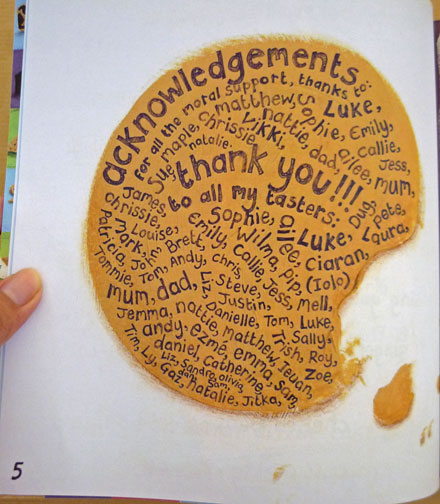 acknowledgements
for all the moral support, thanks to:
matthew, Sophie, Luke,
Sue, maple, chrissie, Vikki, nattie, dad, ailee, Emily,
natalie. Callie,
Jess,
mum,
thank you!!!
Dug,
pete,
to all my tasters:
James, Sophie, Luke, Laura,
chrissie, Louise, emily, Wilma, Ciaran,
Patricia, mark, John, Brett, Callie, pip, (Iolo)
Tommie, Tom, Andy, chris, Jess, Mell,
mum, dad, Liz, Steve, Justin,
Jemma, nattie, Danielle, Tom, Luke,
andy, ezme, matthew, Trish, Sally,
Tim, daniel, emma, Ieuan, Roy,
Ly, Liz, Sandra, Catherine, Sam, Zoe,
Gaz, olivia,
natalie, Jitka,
5